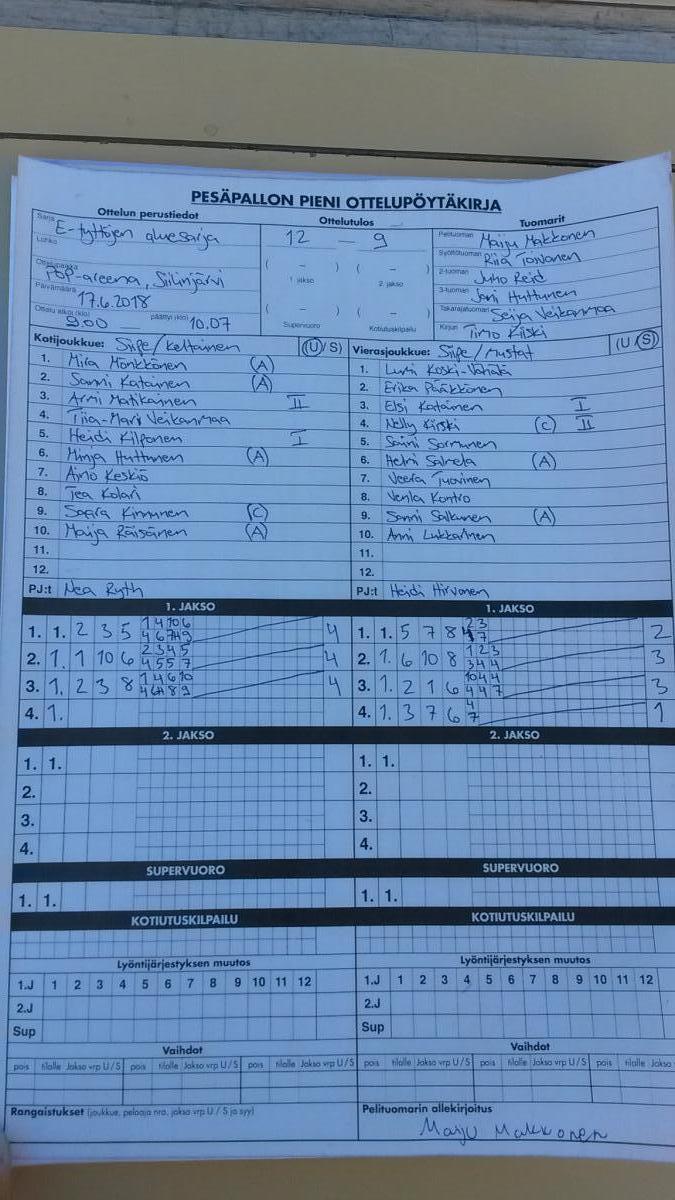 PESÄPALLON PIENI OTTELUPÖYTÄKIRJA
Ottelun perustiedot
Sarja E-tyttöjen aluesarja
Lohko
Ottelupaikka POP-areena, Siilinjärvi
Päivämäärä 17.6.2018
Ottelu alkoi (klo) 9.00 päättyi (klo) 10.07
Ottelutulos
12 – 9
( – ) ( – )
1. jakso 2. jakso
( – ) ( – )
Supervuoro Kotiutuskilpailu
Tuomarit
Pelituomari Maiju Makkonen
Syöttötuomari Riia Toivonen
2-tuomari Juho Reid
3-tuomari Joni Huttunen
Takarajatuomari Seija Veikanmaa
Kirjuri Timo Kiiski
Kotijoukkue: Siipe / Keltainen (U / S)
1. Mira Mönkkönen (A)
2. Sanni Katainen (A)
3. Anni Matikainen II
4. Tiia-Mari Veikanmaa
5. Heidi Kilponen I
6. Minja Huttunen (A)
7. Aino Keskiö
8. Tea Kolari
9. Saara Kinnunen (C)
10. Maija Räisänen (A)
11.
12.
PJ:t Nea Ryth
Vierasjoukkue: Siipe / Mustat (U / S)
1. Lumi Koski-Vähälä
2. Erika Pääkkönen
3. Elsi Katainen I
4. Nelly Kiiski (C) II
5. Sanni Sormunen
6. Helmi Salmela (A)
7. Veera Tuovinen
8. Venla Kontro
9. Sanni Salkunen (A)
10. Anni Lukkarinen
11.
12.
PJ:t Heidi Hirvonen
1. JAKSO
1. 1. 2 3 5 4
2. 1. 1 10 6 2345 4557 4
3. 1. 2 3 8 4
4. 1.
1. JAKSO
1. 1. 5 7 8 2
2. 1. 6 10 8 123 344 3
3. 1. 2 1 6 1044 447 3
4. 1. 3 7 6 4 7 1
2. JAKSO
1. 1.
2.
3.
4.
2. JAKSO
1. 1.
2.
3.
4.
SUPERVUORO
1. 1.
SUPERVUORO
1. 1.
KOTIUTUSKILPAILU
KOTIUTUSKILPAILU
Lyöntijärjestyksen muutos
1.J 1 2 3 4 5 6 7 8 9 10 11 12
2.J
Sup
Lyöntijärjestyksen muutos
1.J 1 2 3 4 5 6 7 8 9 10 11 12
2.J
Sup
Vaihdot
pois tilalle Jakso vrp U / S pois tilalle Jakso vrp U / S pois tilalle Jakso vrp U / S
Vaihdot
pois tilalle Jakso vrp U / S pois tilalle Jakso vrp U / S pois tilalle Jakso
Rangaistukset (joukkue, pelaaja nro, jakso vrp U / S ja syy)
Pelituomarin allekirjoitus
Maiju Makkonen